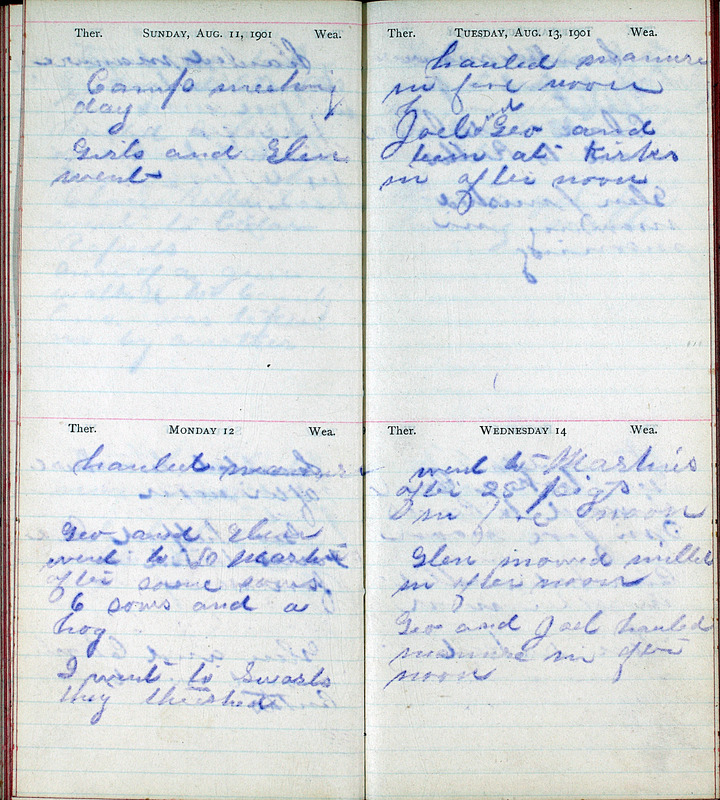 Ther. SUNDAY, AUG. 11, 1901 Wea.
Camp meeting
day
Girls and Glen
went
Ther. MONDAY 12 Wea.
hauled manure
Geo and Glen
went to Martin
after some sows
6 sows and a
hog
I went to Swarts
they threshed
Ther. TUESDAY, AUG. 13, 1901 Wea.
hauled manure
in fore noon
Joel and Geo and
team at Kirks
in after noon
Ther. WEDNESDAY 14 Wea.
went to Martins
after 25 pigs
in fore noon
Glen mowed millet
in after noon
Geo and Joel hauled
manure in after
noon